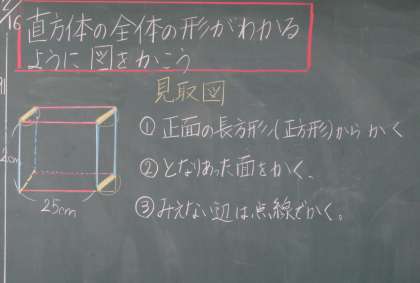 16
直方体の全体の形がわかる
ように図をかこう
見取図
①正面の長方形(正方形)からかく
②となりあった面をかく、
③みえない辺は点線でかく。
25cm